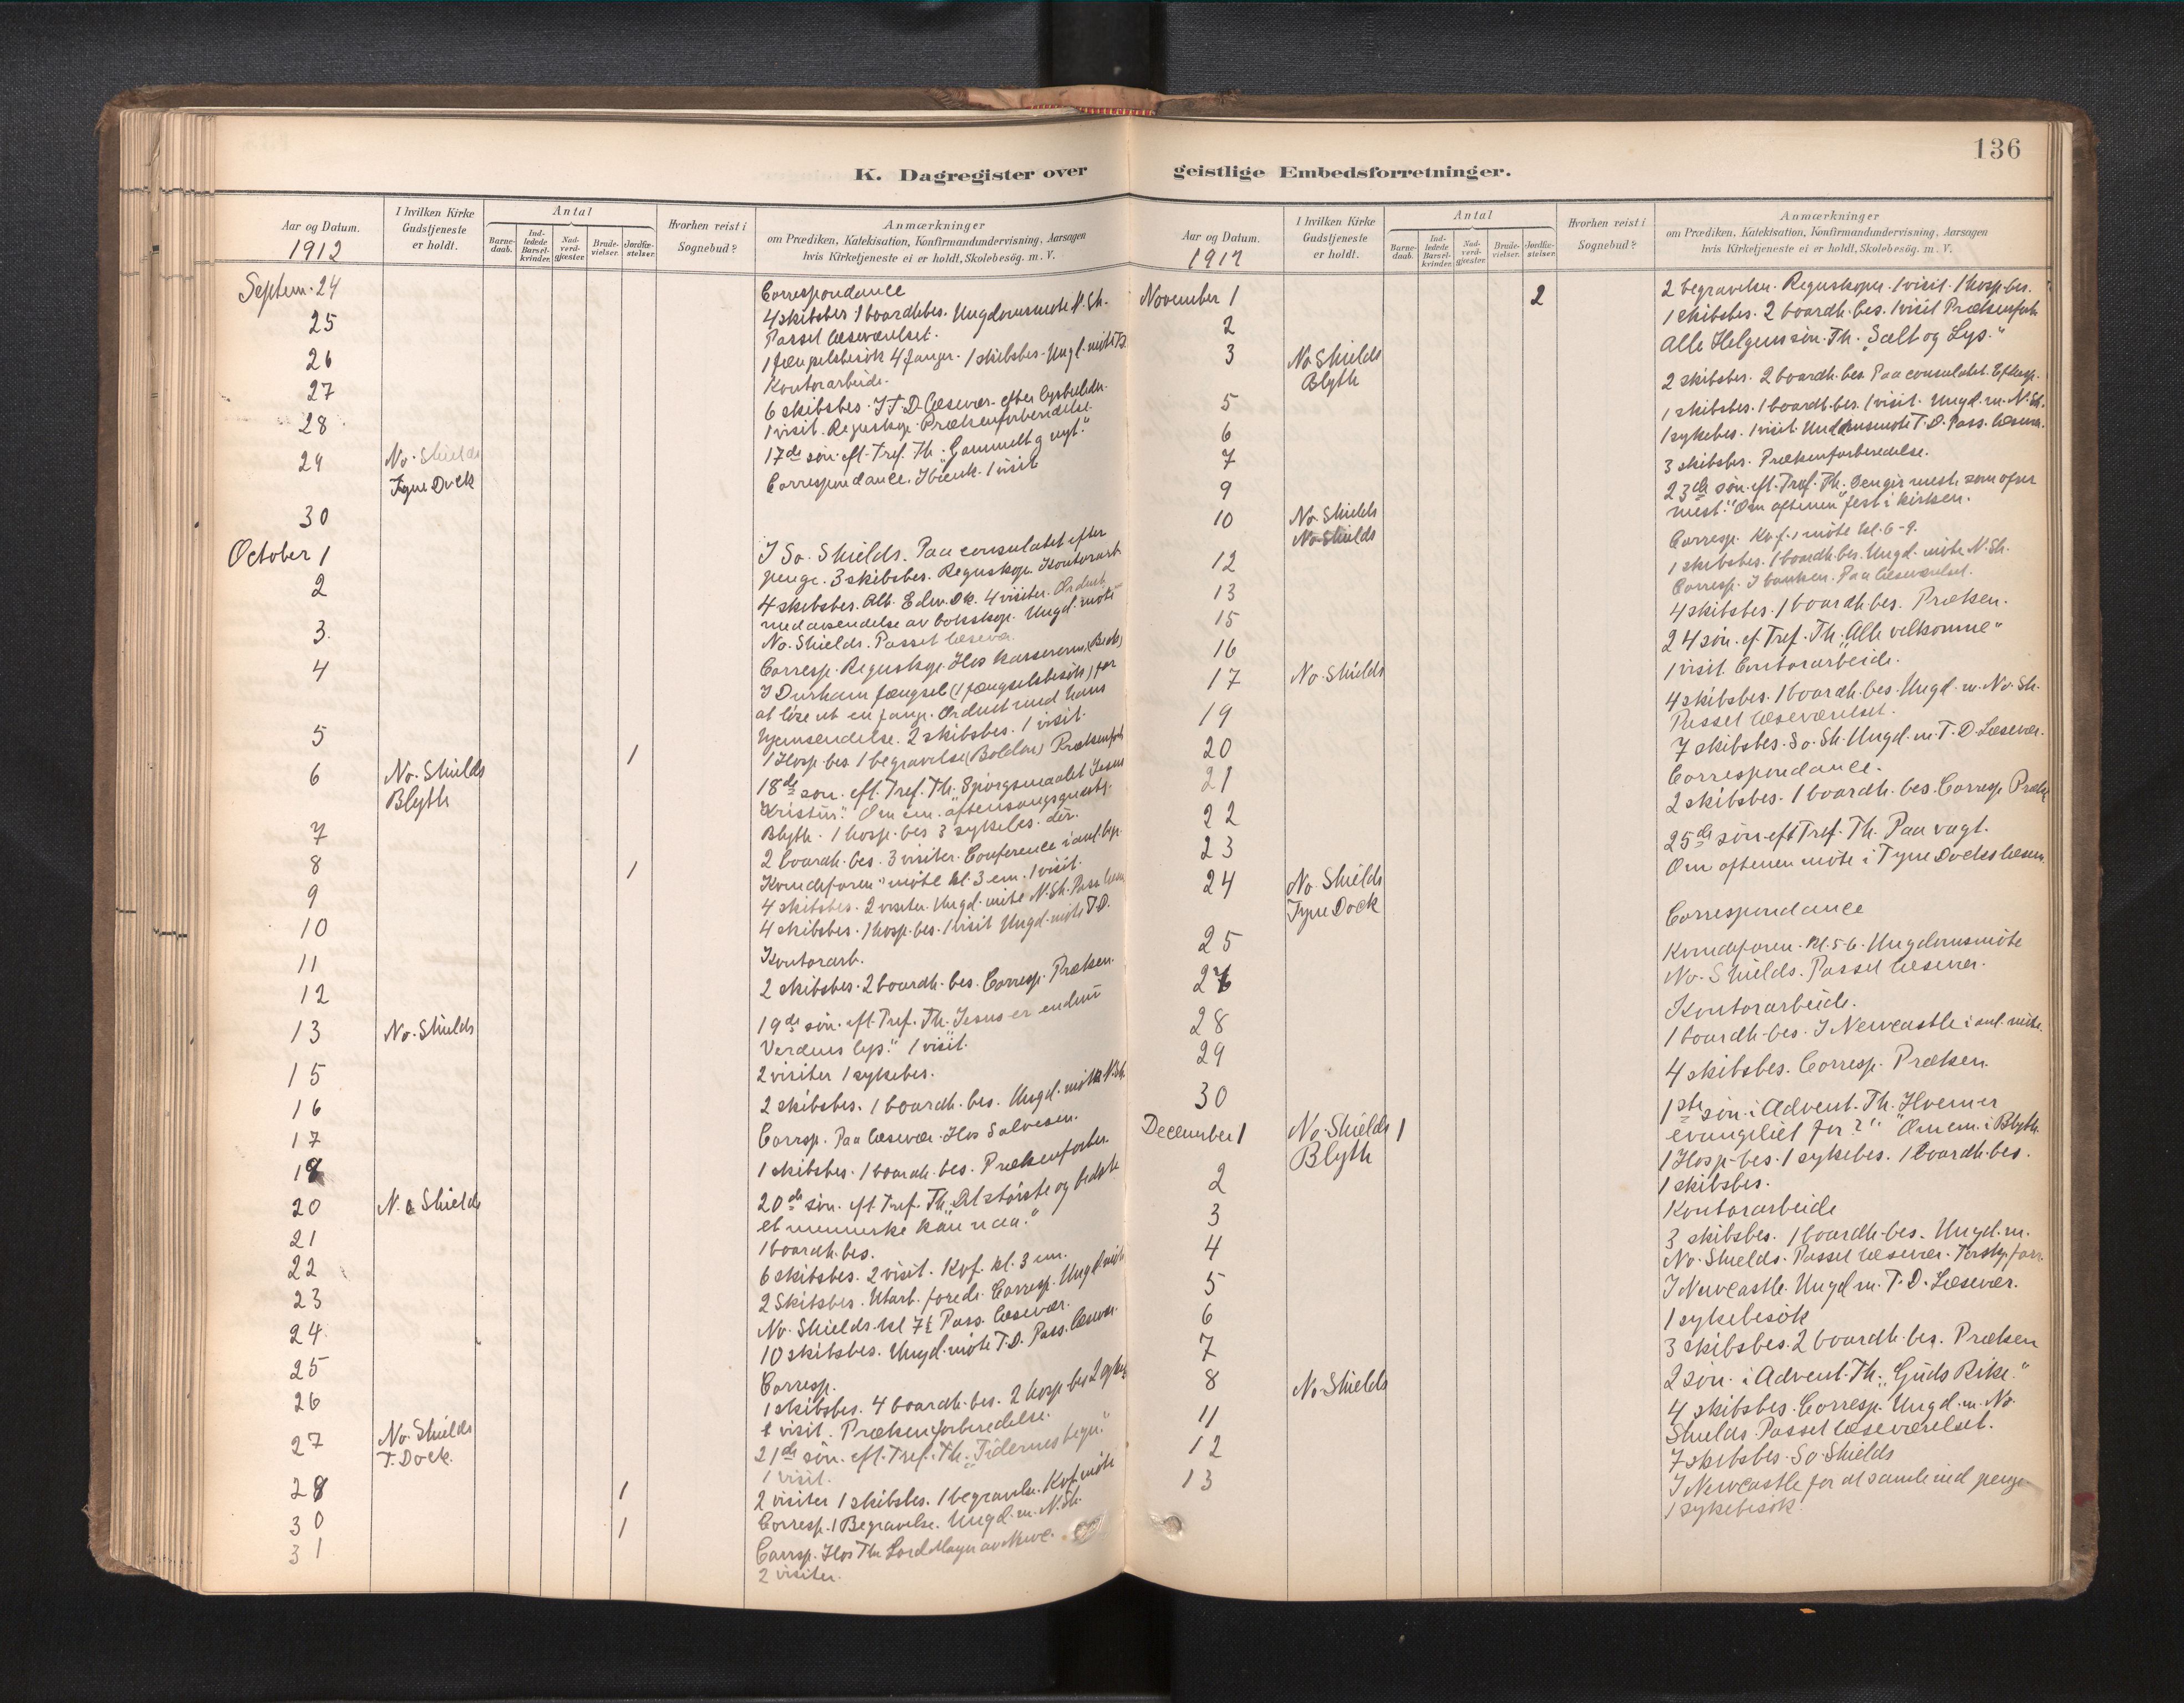 136
K. Dagregister over geistlige Embedsforretninger.
Aar og Datum.
1912
I hvilken Kirke Gudstjeneste er holdt.
Antal
Barne-daab.
Ind-ledede Barsel-kvinder.
Nad-verd-gjæster.
Brude-vielser.
Jordfæ-stelser.
Hvorhen reist i Sognebud?
Anmærkninger
om Prædiken, Katekisation, Konfirmandundervisning, Aarsagen
hvis Kirketjeneste ei er holdt, Skolebesög. m. V.
Septem. 24
Correspondance
25
4 skibsbes 1 boardh.bes. Ungdomsmöte N. Sh.
Passet læseværelset.
26
1 fængselsbesök 4 fanger. 1 skibsbes. Ungl. möte T.D.
27
Kontorarbeide.
28
6 skibsbes. I T. D. læsevær. efter lysbilleder.
1 visit. Regnskap. Prækenforberedelse.
29
No. Shields
Tyne Dock
17de sön. eft. Tref. Th. "Gammelt og nyt."
30
Correspondance. I bank. 1 visit
October 1
I So. Shields. Paa consulatet efter
penge. 3 skibsbes. Regnskap. Kontorarb.
2
4 skibsbes. Alb. Edw. Dk. 4 visiter. Ordnet
med avsendelse av bokskap. Ungd. möte
No. Shields. Passet læsevær.
3.
Corresp. Regnskap. Hos kassereren (Beck)
4
I Durham fængsel (1 fængselsbesök) for
at löse ut en fange. Ordnet med hans
hjemsendelse. 2 skibsbes. 1 visit.
5
1
1 Hosp. bes. 1 begravelse (Boldon) Prækenforb.
6
No. Shields
Blyth
18de sön. eft. Tref. Th. "Spörgsmaalet Jesus
Kristus." Om em. aftensangsgudstj.
Blyth. 1 hosp. bes 3 sykebes. der.
7
2 boardh. bes. 3 visiter. Conference i anl. byg.
8
1
Kvindeforen. möte kl. 3 em. 1 visit.
9
4 skibsbes. 2 visiter. Ungd. möte N. Sh. Pass. læsev.
10
4 skibsbes. 1 hosp. bes. 1 visit Ungd. möte T.D.
11
Kontorarb.
12
2 skibsbes. 2 boardh. bes. Corresp. Præken.
13
No. Shields
19de sön. eft. Tref. Th. "Jesus er endnu
Verdens lys." 1 visit.
15
2 visiter 1 sykebes.
16
2 skibsbes. 1 boardh. bes. Ungd. möte N. Sh.
17
Corresp. Paa læsevær. Hos Salvesen.
18
1 skibsbes. 1 boardh. bes. Prækenforber.
20
No Shields
20de sön. eft. Tref. Th. "Det störste og bedste
et menneske kan naa."
21
1 boardh. bes.
22
6 skibsbes. 2 visit. Kvf. kl. 3 em.
23
2 Skibsbes. Utarb. foredr. Corresp. Ungd. möte
No. Shields kl 7½ Pass. læsevær.
24.
10 skibsbes. Ungd. möte T. D. Pass. læsevær.
25
Corresp.
26
1 skibsbes. 4 boardh. bes. 2 hosp. bes 2 sykeb.
1 visit. Prækenforberedelse.
27
No. Shields
T. Dock.
21de sön. eft. Tref. Th. "Tidernes tegn."
1 visit.
28
1
2 visiter 1 skibsbes. 1 begravelse. Kvf. möte
30
1
Corresp. 1 Begravelse. Ungd. m. N. Sh.
31
Corresp. Hos The Lord Mayor av Newc.
2 visiter.
Aar og Datum.
1912
I hvilken Kirke Gudstjeneste er holdt.
Antal
Barne-daab.
Ind-ledede Barsel-kvinder.
Nad-verd-gjæster.
Brude-vielser.
Jordfæ-stelser.
Hvorhen reist i Sognebud?
Anmærkninger
om Prædiken, Katekisation, Konfirmandundervisning, Aarsagen
hvis Kirketjeneste ei er holdt, Skolebesög. m. V.
November 1
2
2 begravelser. Regnskaper. 1 visit. 1 hosp. bes.
2
1 skibsbes. 2 boardh. bes. 1 visit Prækenforb.
3
No Shields
Blyth
Alle Helgens sön. Th. "Salt og Lys."
5
2 skibsbes. 2 boardh. bes. Paa consulatet.
6
1 skibsbes. 1 boardh. bes. 1 visit. Ungd. m. N. Sh.
7
1 sykebes. 1 visit. Ungdomsmöte T. D. Pass. læsevær.
9
3 skibsbes. Prækenforberedelse.
10
No Shields
No Shields
23de sön. eft. Tref. Th. "Den gir mest, som ofrer
mest." Om aftenen fest i kirken.
12
Corresp. Kv. f. möte kl. 6-9.
13
1 skibsbes. 1 boardh. bes. Ungd. möte N. Sh.
Corresp. I banken. Paa læseværelset.
15
4 skibsbes. 1 boardh. bes. Præken.
16
17
No. Shields
24 sön. ef. Tref. Th. "Alle velkomne"
1 visit. Contorarbeide.
19
4 skibsbes. 1 boardh. bes. Ungd. m. No. Sh.
20
Passet læseværelset.
7 skibsbes. So. Sh. Ungd. m. T. D. Læsevær.
21
Correspondance.
22
2 skibsbes. 1 boardh. bes. Corresp. Præken
23
24
No. Shields
Tyne Dock
25de sön. eft Tref. Th. Paa vagt.
Om aftenen möte i Tyne Docks læsevær.
25
Correspondance
26
Kvindeforen. Kl. 5-6. Ungdomsmöte
No. Shields. Passet læsevær.
28
Kontorarbeide.
29
1 boardh. bes. I Newcastle i anl. möte.
30
4 skibsbes. Corresp. Præken.
December 1
No. Shields
Blyth
1
1ste sön. i Advent. Th. "Hvem er
evangeliet for?" Om em. i Blyth.
1 Hosp. bes. 1 sykebes. 1 boardh. bes.
2
1 skibsbes.
3
Kontorarbeide
4
3 skibsbes. 1 boardh. bes. Ungd. m.
No. Shields. Passet læsevær.
5
I Newcastle. Ungd m. T. D. Læsevær.
6
1 sykebesök
7
3 skibsbes. 2 boardh. bes. Præken
8
No. Shields
2 sön. i Advent. Th. "Guds Rike."
11
4 skibsbes. Corresp. Ungd. m. No.
Shields Passet læseværelset.
12
7 skibsbes. So. Shields
13
I Newcastle for at samle ind penge
1 sykebesök.